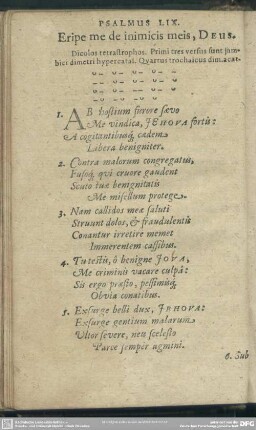 PSALMUS LIX.
Eripe me de inimicis meis, DEUS.
Dicolos tetrastrophos. Primi tres versus sunt jam-
bici dimetri hypercatal. Quartus trochaicus dim. acat.
1. AB hostium furore sævo
Me vindica, JEHOVA fortis:
A cogitantibusq́; cædem
Libera benigniter.
2. Contra malorum congregatus,
Fusoq́; qui cruore gaudent
Scuto tuæ benignitatis
Me misellum protege.
3. Nam callidos meæ saluti
Struunt dolos, & fraudulentis
Conantur irretire memet
Immerentem cassibus.
4. Tu testis, ô benigne JOVA,
Me criminis vacare culpâ:
Sis ergo præsto, pessimisq́;
Obvia conatibus.
5. Exsurge belli dux, JEHOVA:
Exsurge gentium malarum
Ultor severe, neu scelesto
Parce semper agmini.
6. Sub